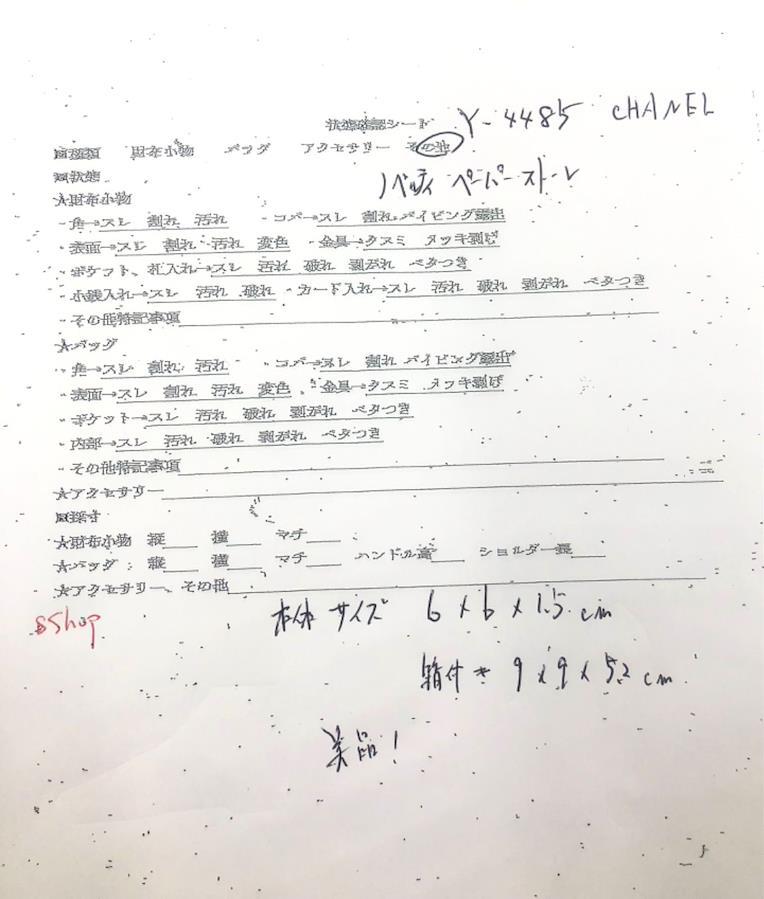 状態確認シート Y-4485 CHANEL
■種類 財布小物 バッグ アクセサリー その他
■状態 ノベルティ ペーパーストーレ
★財布小物
・角→スレ 割れ 汚れ ・コバ→スレ 割れ パイピング露出
・表面→スレ 割れ 汚れ 変色 ・金具→クスミ メッキ剥げ
・ポケット、札入れ→スレ 汚れ 破れ 剥がれ ベタつき
・小銭入れ→スレ 汚れ 破れ ・カード入れ→スレ 汚れ 破れ 剥がれ ベタつき
・その他特記事項
★バッグ
・角→スレ 割れ 汚れ ・コバ→スレ 割れ パイピング露出
・表面→スレ 割れ 汚れ 変色 ・金具→クスミ メッキ剥げ
・ポケット→スレ 汚れ 破れ 剥がれ ベタつき
・内部→スレ 汚れ 破れ 剥がれ ベタつき
・その他特記事項
★アクセサリー
■採寸
★財布小物 縦 横 マチ
★バッグ 縦 横 マチ ハンドル高 ショルダー長
★アクセサリー、その他
sShop 本体 サイズ 6 x 6 x 1.5 cm
箱付き 9 x 9 x 5.2 cm
美品!